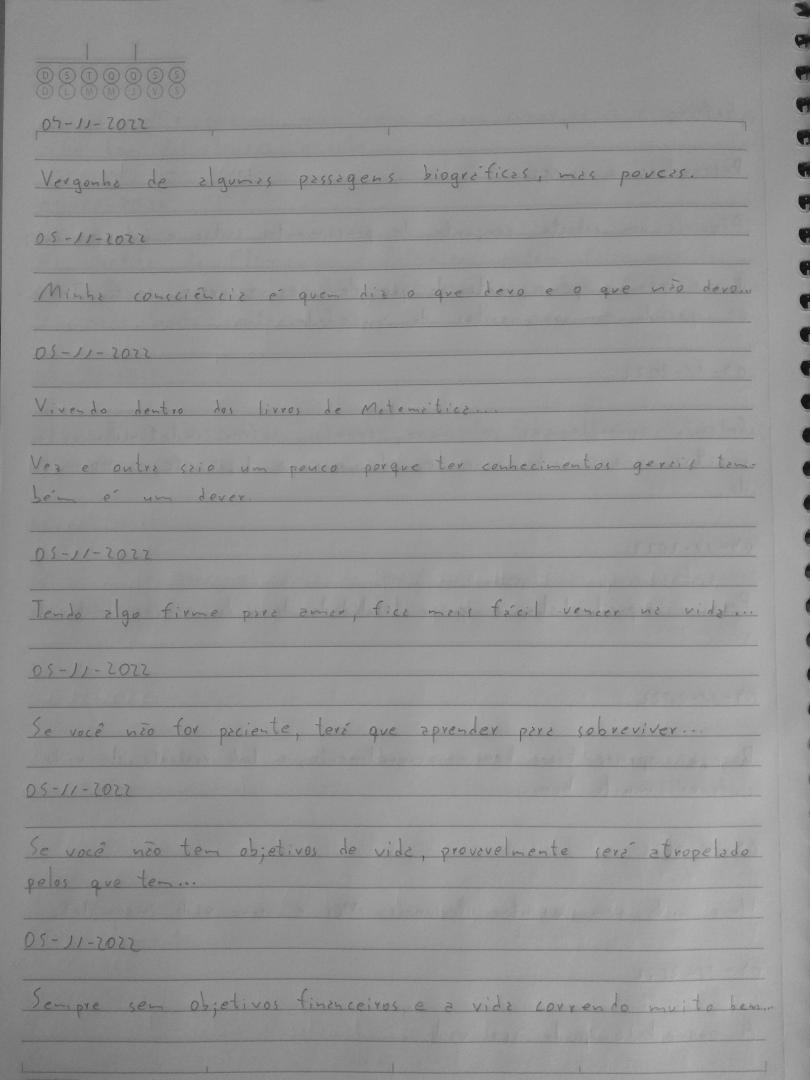 D S T Q Q S S
D L M M J V S
04-11-2022
Vergonha de algumas passagens biográficas, mas poucas.
05-11-2022
Minha consciência é quem diz o que devo e o que não devo...
05-11-2022
Vivendo dentro dos livros de Matemática...
Vez e outra saio um pouco porque ter conhecimentos gerais tam-
bém é um dever.
05-11-2022
Tendo algo firme para amar, fica mais fácil vencer na vida...
05-11-2022
Se você não for paciente, terá que aprender para sobreviver...
05-11-2022
Se você não tem objetivos de vida, provavelmente será atropelado
pelos que tem...
05-11-2022
Sempre sem objetivos financeiros e a vida correndo muito bem...